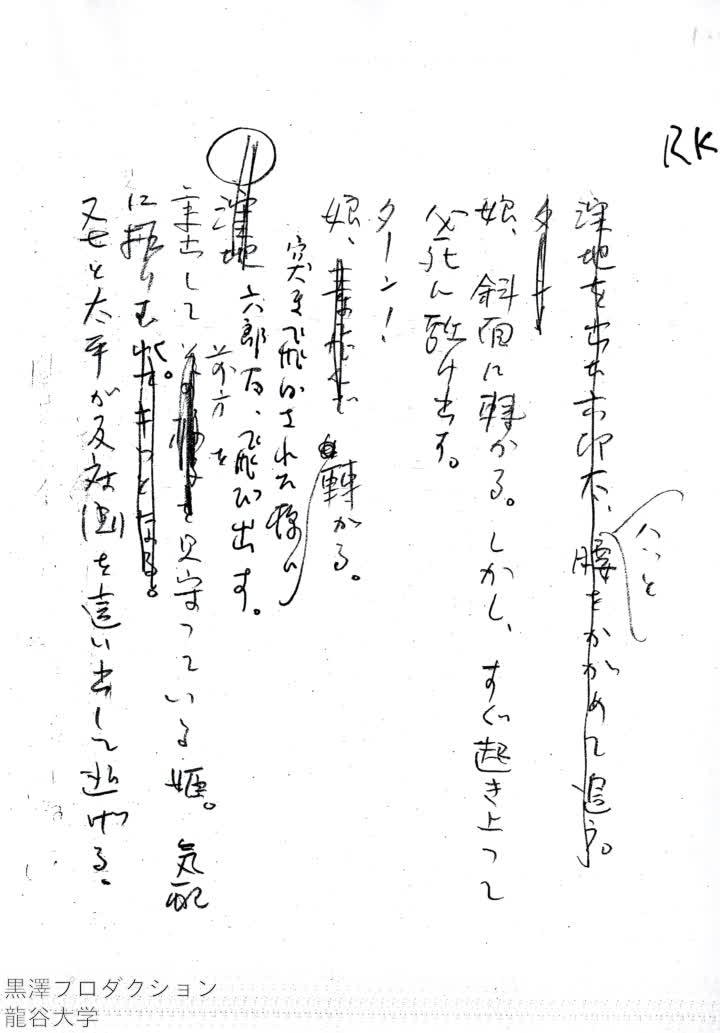 RK
窪地を出た六郎太、腰をかがめて追う。
ハッと
ター
娘、斜面に転がる。しかし、すぐ起き上って
必死に駈け出す。
ターン!
娘、転がる。
突き飛ばされた様に
窪地 六郎太、飛び出す。
前方を
を見守っている姫。気配
に振りむ
又七と太平が反対側を這い出して逃げる。
黒澤プロダクション
龍谷大学